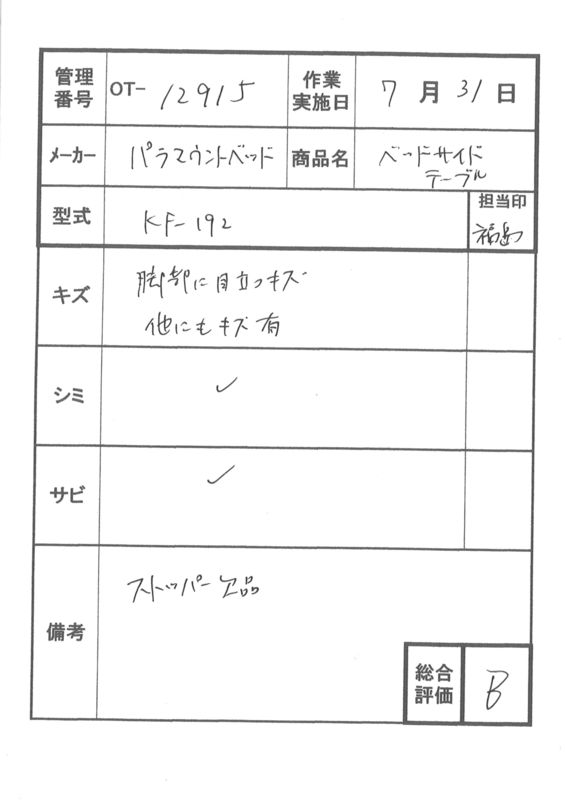 管理番号 OT- 12915 作業実施日 7月31日
メーカー パラマウントベッド 商品名 ベッドサイドテーブル
型式 KF-192 担当印 福島
キズ 脚部に目立つキズ
他にもキズ有
シミ ✓
サビ ✓
備考 ストッパー欠品
総合評価 B